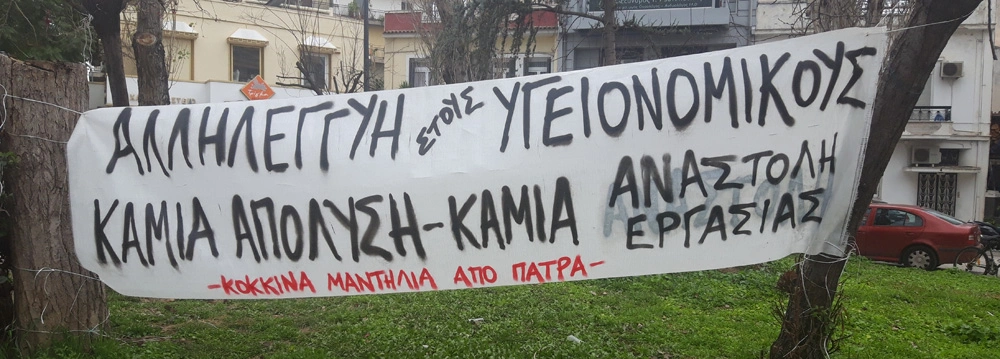 ΑΛΛΗΛΕΓΓΥΗ ΣΤΟΥΣ ΥΓΕΙΟΝΟΜΙΚΟΥΣ
ΚΑΜΙΑ ΑΠΟΛΥΣΗ-ΚΑΜΙΑ ΑΝΑΣΤΟΛΗ
ΕΡΓΑΣΙΑΣ
-ΚΟΚΚΙΝΑ ΜΑΝΤΗΛΙΑ ΑΠΟ ΠΑΤΡΑ-